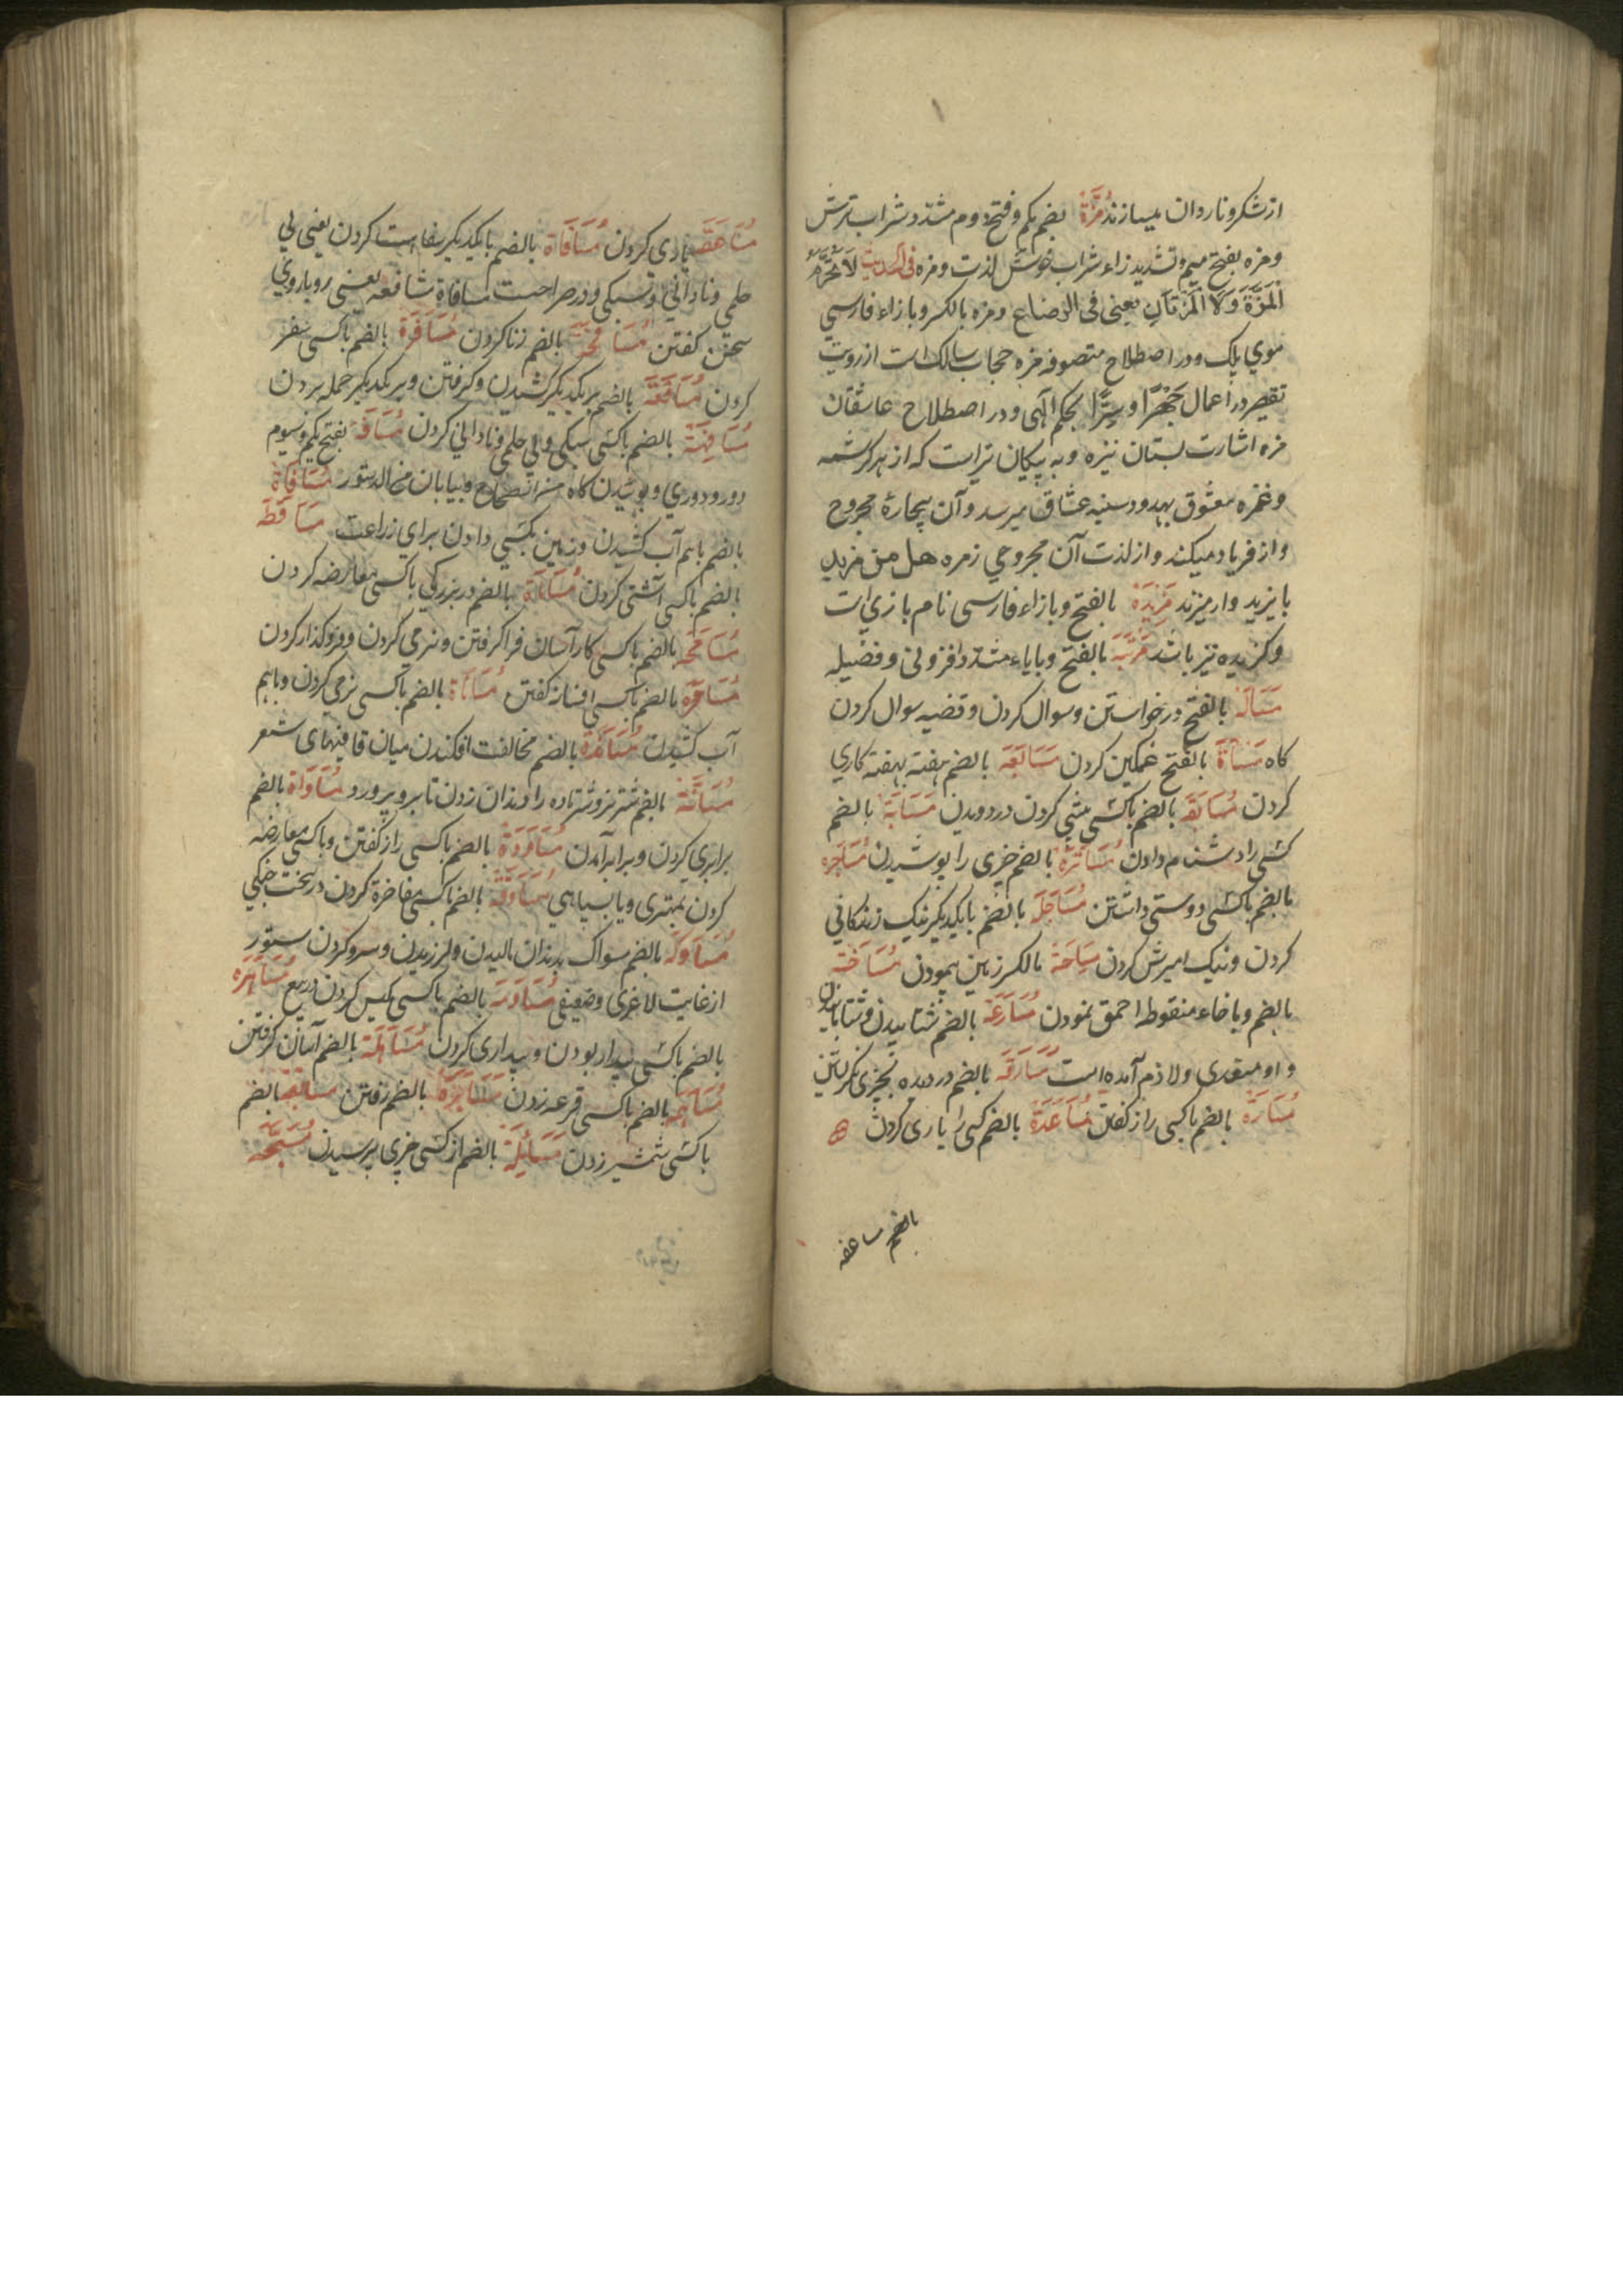 از شکر و ناردان میسازند مُزَّة بضم یکم و فتح دوم مشدد شراب ترش
و مزه بفتح میم و تشدید زاء شراب خوش لذت و مزه فی الحدیث لَا تُحَرِّمُ
الْمَزَّةَ وَلَا الْمَزَّتَانِ یعنی فی الرضاع و مزه بالکسر و بازاء فارسی
موی پلک و در اصطلاح متصوفه مزه حجاب سالک است از رویت
تقصیر در اعمال جَهْرًا و سِرًّا بحکم الهی و در اصطلاح عاشقان
مزه اشارت بستان نیزه و به پیکان تیر است که از هر کرشمه
و غمزه معشوق بهدود سینه عشاق میرسد و آن بیچارهٔ مجروح
و از فریاد میکند و از لذت آن مجروحی زمره هل من مزید
بایزید وار میزند مَزِیدَة بالفتح و بازاء فارسی نام بازی است
و کزیده نیز باشد مَزِیَّة بالفتح و با یاء مشدد افزونی و فضیله
مَسْأَلَة بالفتح درخواستن و سوال کردن و قضیه سوال کردن
کاه مَسَاءَة بالفتح غمکین کردن مُسَابَعَة بالضم هفته بهفته کاری
کردن مُسَابَقَة بالضم باکسی پیشی کردن در دویدن مُسَابَّة بالضم
کسی را دشنام دادن مُسَاتَرَة بالضم چیزی را پوشیدن مُسَاجَرَه
بالضم باکسی دوستی داشتن مُسَاجَلَة بالضم با یکدیگر نیک زندکانی
کردن و نیک امیزش کردن مِسَاحَة بالکسر زمین پیمودن مُسَاخَنَة
بالضم و باخاء منقوط احمق نمودن مُسَارَعَة بالضم شتابیدن و شتابانیدن
و او متعدی و لازم آمده است مُسَارَقَه بالضم دزدیده بچیزی نکریستن
مُسَارَّة بالضم باکسی راز کفتن مُسَاعَدَة بالضم کسی را یاری کردن
بالضم مساعفه
یاری کردن مُسَافَاة بالضم با یکدیگر سفاهت کردن یعنی بی
حلمی و نادانی و سبکی و در صراحست مسافاة مشافهه یعنی رویاروی
سخن کفتن مُسَافَحَة بالضم زنا کردن مُسَافَرَة بالضم باکسی سفر
کردن مُسَافَعَة بالضم بر یکدیگر کشیدن و کرفتن و بر یکدیگر حمله بردن
مُسَافَهَة بالضم باکسی سبکی و بی حلمی و نادانی کردن مَسَافَة بفتح یکم و سیوم
دور و دوری و بیابان من الدستور مُسَاقَاة
بالضم باهم آب کشیدن و زمین بکسی دادن برای زراعت مُسَاقَطَة
بالضم باکسی آشتی کردن بالضم در بزرکی باکسی معارضه کردن
مُسَامَحَه بالضم باکسی کار آسان فرا کرفتن و نرمی کردن و فروکذار کردن
مُسَامَرَه بالضم باکسی افسانه کفتن مُسَانَاة بالضم باکسی نرمی کردن و باهم
آب کشیدن مُسَانَدَة بالضم مخالفت افکندن میان قافیهای شعر
مُسَانَّة بالضم شتر نر و شتر ماده را دندان زدن تا برو برود مُسَاوَاة بالضم
برابری کردن و برابر آمدن مُسَاوَدَة بالضم باکسی راز کفتن و باکسی معارضه
کردن بمهتری و یا بسیاهی مُسَاوَقَة بالضم باکسی مفاخرة کردن در سخت
مُسَاوَکَة بالضم سواک بدندان مالیدن و لرزیدن و سرو کردن ستور
از غایت لاغری و ضعیفی مُسَاوَمَة بالضم باکسی مکیس کردن در بیع مُسَاهَرَه
بالضم باکسی بیدار بودن و بیداری کردن مُسَاهَلَة بالضم آسان کرفتن
مُسَاهَمَه بالضم باکسی قرعه زدن مُسَایَرَة بالضم رفتن مُسَایَفَة بالضم
باکسی شمشیر زدن مُسَائَلَة بالضم از کسی چیزی پرسیدن مُسَبِّحَة